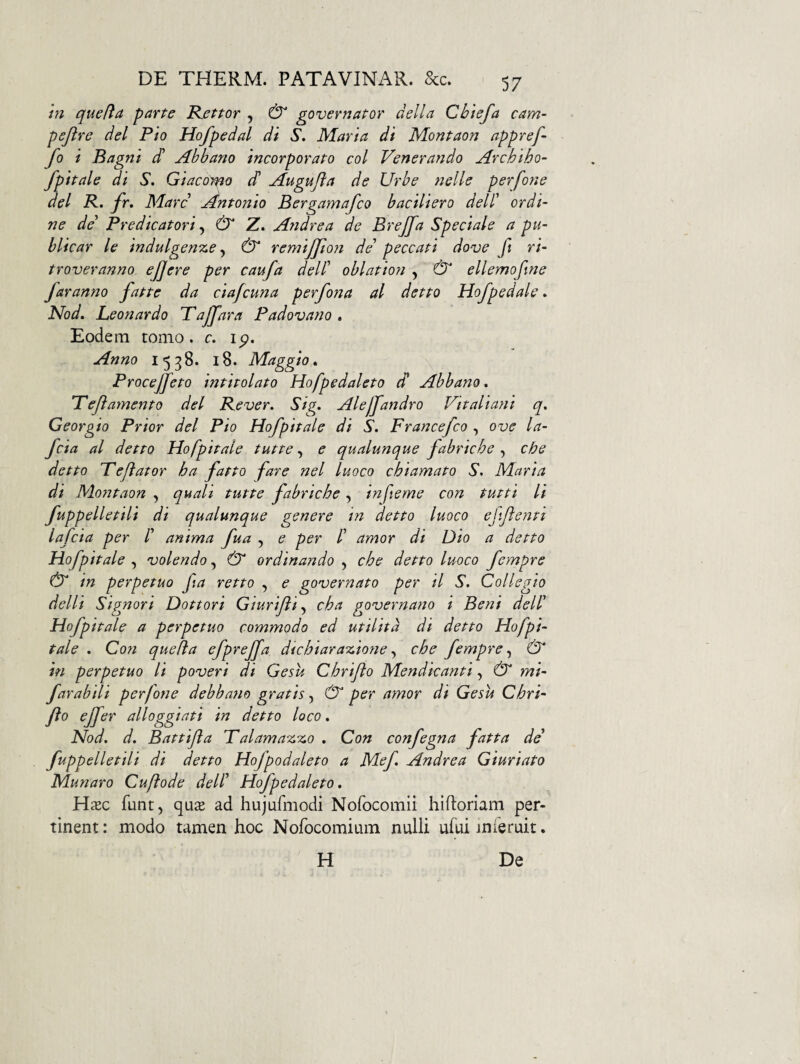 DE THERM. PATAVINAR. &c. 57
in queſta parte Rettor, & governator della Chieſa cam-
peſtre del Pio Hoſpedal di S. Maria di Montaon appreſ-
ſo i Bagni d' Abbano incorporato col Venerando Archiho-
ſpitale di S. Giacomo d' Auguſta de Urbe nelle perſone
del R. fr. Marc' Antonio Bergamaſco baciliero dell' ordi-
ne de' Predicatori, & Z. Andrea de Breſſa Speciale a pu-
blicar le indulgenze, & remiſſion de' peccati dove ſi ri-
troveranno eſſere per cauſa dell' oblation, & ellemoſine
faranno fatte da ciaſcuna perſona al detto Hoſpedale.
Nod. Leonardo Taſſara Padovano.
Eodem tomo. c. 19.
Anno 1538. 18. Maggio.
Proceſſeto intitolato Hoſpedaleto d' Abbano.
Teſtamento del Rever. Sig. Aleſſandro Vitaliani q.
Georgio Prior del Pio Hoſpitale di S. Franceſco, ove la-
ſcia al detto Hoſpitale tutte, e qualunque fabriche, che
detto Teſtator ha fatto fare nel luoco chiamato S. Maria
di Montaon, quali tutte fabriche, inſieme con tutti li
ſuppelletili di qualunque genere in detto luoco eſiſtenti
laſcia per l' anima ſua, e per l' amor di Dio a detto
Hoſpitale, volendo, & ordinando, che detto luoco ſempre
& in perpetuo ſia retto, e governato per il S. Collegio
delli Signori Dottori Giuriſti, cha governano i Beni dell'
Hoſpitale a perpetuo commodo ed utilità di detto Hoſpi-
tale. Con queſta eſpreſſa dichiarazione, che ſempre, &
in perpetuo li poveri di Gesù Chriſto Mendicanti, & mi-
ſarabili perſone debbano gratis, & per amor di Gesù Chri-
ſto eſſer alloggiati in detto loco.
Nod. d. Battiſta Talamazzo. Con conſegna fatta de'
ſuppelletili di detto Hoſpodaleto a Meſ. Andrea Giuriato
Munaro Cuſtode dell' Hoſpedaleto.
Hæc ſunt, quæ ad hujuſmodi Noſocomii hiſtoriam per-
tinent: modo tamen hoc Noſocomium nulli uſui inſeruit.
H De